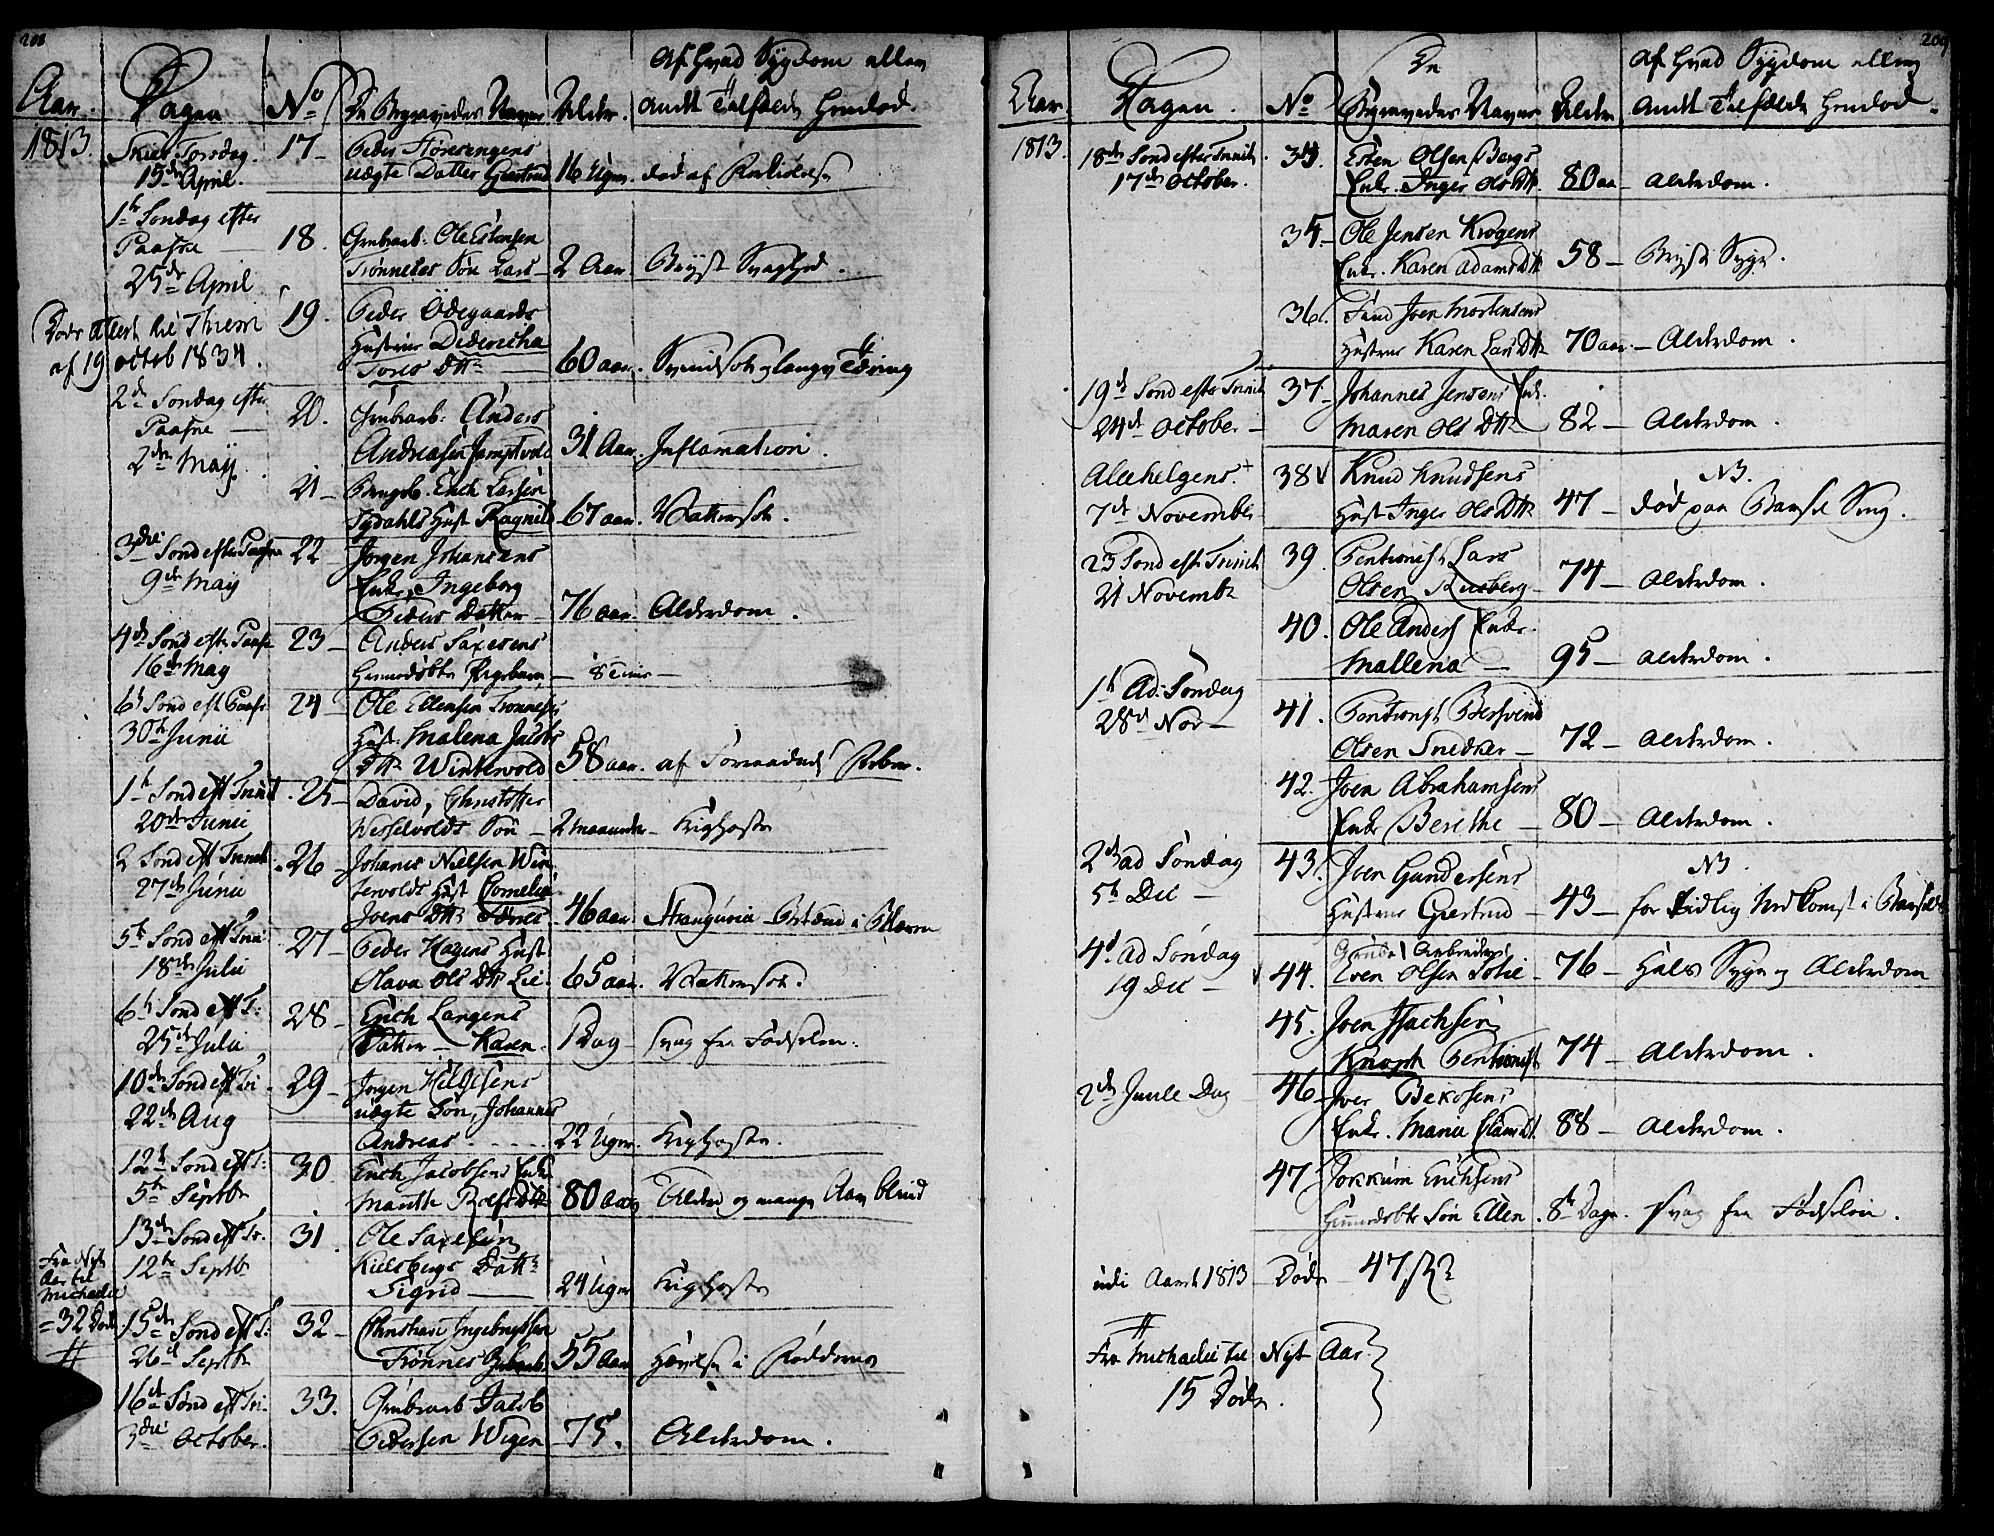 208
Aar.
Dagen
No
De Begravedes Navne
Alder.
Af Hvad Sygdom eller
Andt Tilfælde Hendød.
1813.
Skier Torsdag.
15de April.
17 –
Peder
uægte Datter Giertrud
16 Uger.
død af
1te Søndag efter
Paaske
25de April
18.
Grubearb: Ole Estensen
Trønneses Søn Lars –
2 Aar.
Bryst Svaghed.
19.
Peder Ødegaards
Hustrue Dedericha
Tores Dtr
60 aar.
Svindsot og langv Tæring
Attest til Thiem
af 19 octob 1834.
2de Søndag efter
Paaske –
2den Maÿ.
20.
Grubearb: Anders
Andreasen Jamptvold
31 Aar.
Inflamation.
21 –
Bergsb. Erich Larsen
Tydahls Hust Ragnild
67 aar.
Vattersot.
3die Sond eft Paaske
9de May
22 –
Jørgen Johansens
Enke, Ingeborg
Peders Datter –
76 aar.
Alderdom.
4de Sond eft Paaske
16de May
23 –
Anders Saxesens
–
6te Sond eft Paaske
30te Junii
24 –
Ole Ellensen Trønnese
Hust. Malena Jacobs
Dtr. Wintervold
58 aar.
af
1te Sond eft Trinit
20de Junii
25 –
David, Christoffer
Wesselvolds Søn –
2 maaneder –
Kighoste
2 Sond eft Trinit
27de Junii
26
Johanes Nielsen Win
tervolds Hust Cornelia
Joens Dtr
46 aar.
Strangúria – i Blæren
5te Sond eft Trini
18de Julii
27 –
Peder Hagens Hust
Olava Ols Dtr Lie.
65 aar.
Vattersot.
6te Sond eft T:
25de Julii
28 –
Erich Langens
Datter – Karen.
1 Dag –
Svag fra Fødselen.
10de Sond eft Tri
22de Aug
29 –
Jørgen Helgesens
uægte Søn, Johannes
Andreas
22 Uger.
Kighoste.
12te Sond eft T:
5te Septbr
30
Erich Jacobsens Enke
Marith Rolfs Dtr
80 aar
Alder og mange Aar blind
13de Sond eft Tr.
12te Septbr
31.
Ole Saxesen
Kielsbergs Dattr
Sigrid –
24 Uger
Kighoste
Fra Nyt
Aar til
Michaelii
= 32 Døde
15de Sond eft T:
26de Septbr
32 –
Christian Ingebrigtsen
Trønnes
55 Aar
Hævelse i
16de Sønd eft Tri.
3die October.
33.
Grubearb Jacob
Pedersen Wigen
75.
Alderdom.
209
Aar.
Dagen.
No
De
Begravedes Navne
Alder
Af Hvad Sygdom eller
Andt Tilfælde Hendød
1813.
18de Sond efter Trinit.
17de October.
34.
Esten Olsen Bergs
Enke. Inger Ols Dtr.
80 aar –
Alderdom.
35 –
Ole Jensen Krogens
Enke. Karen Adams Dtr
58 –
Bryst Syge.
36.
Joen Mortensens
Hustrue Karen Lars Dtr
70 aar. –
Alderdom.
19de Sond efter Trinit
24de October –
37 –
Johannes Jensens Enke.
Maren Ols Dtr
82 –
Alderdom.
Allehelgens.
7de November
38
Knud Knudsens
Hust Inger Ols Dtr
47 –
NB.
død paa Barsel Seng.
23 Sond eft Trinit
21 Novembr
39.
Pentionist Lars
Olsen Rueberg –
74 –
Alderdom.
40.
Ole Anders Enke.
Mallena –
95 –
Alderdom.
1te Ad: Søndag
28de Nov –
41.
Pentionist Bersvend
Olsen Snedker –
72 –
Alderdom.
42.
Joen Abrahamsens
Enke Berethe –
80 –
Alderdom.
2de ad Søndag
5te Dec –
43.
Joen Gundersens
Hustrue Giertrud –
43 –
NB.
for tidlig Nedkomst i Barsel
4de Ad Søndag
19 Dec –
44.
Grube Arbeider
Olsen –
76 –
Hals Syge og Alderdom
45.
Joen Isachsen
Knoph Pentionist
74 –
Alderdom.
2de Juule Dag
46 –
Iver
Enke. Marie
88 –
Alderdom.
47
Jokkum Erichsens
Søn Ellen.
8te Dage.
Svag fra Fødselen.
udi Aaret 1813 – Døde – 47
Fra Michaelii til Nyt Aar.
15 Døde.